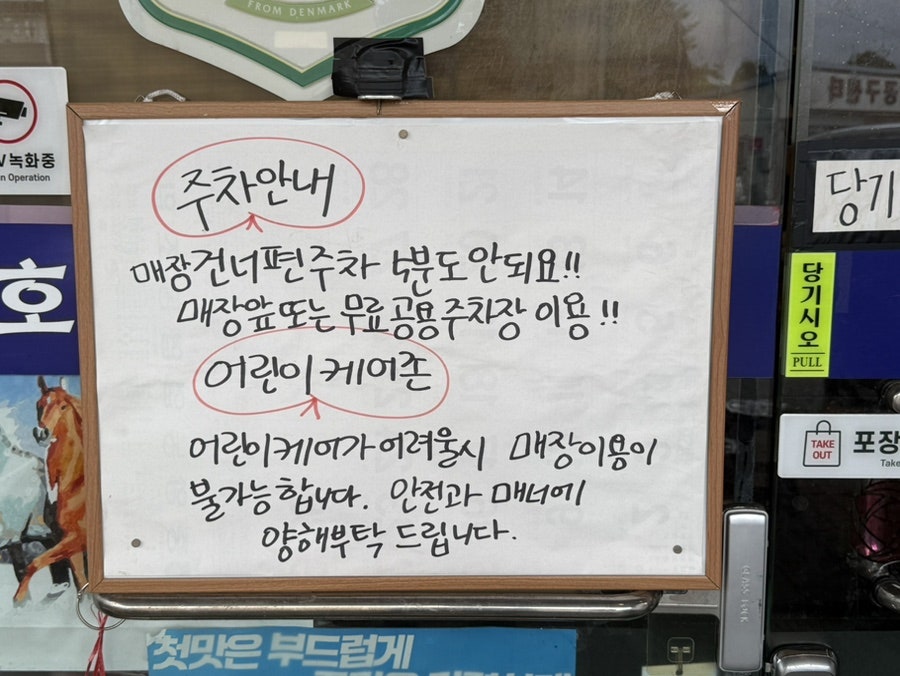 FROM DENMARK
녹화중
n Operation
호
주차안내
매장건너편주차 5분도안되요!!
매장앞또는무료공용주차장 이용!!
어린이케어존
어린이케어가어려울시 매장이용이
불가능합니다. 안전과 매너에
양해부탁 드립니다.
당기
당기시오
PULL
TAKE
OUT
포장
Take
GLASS LOCK
첫맛은 부드럽게